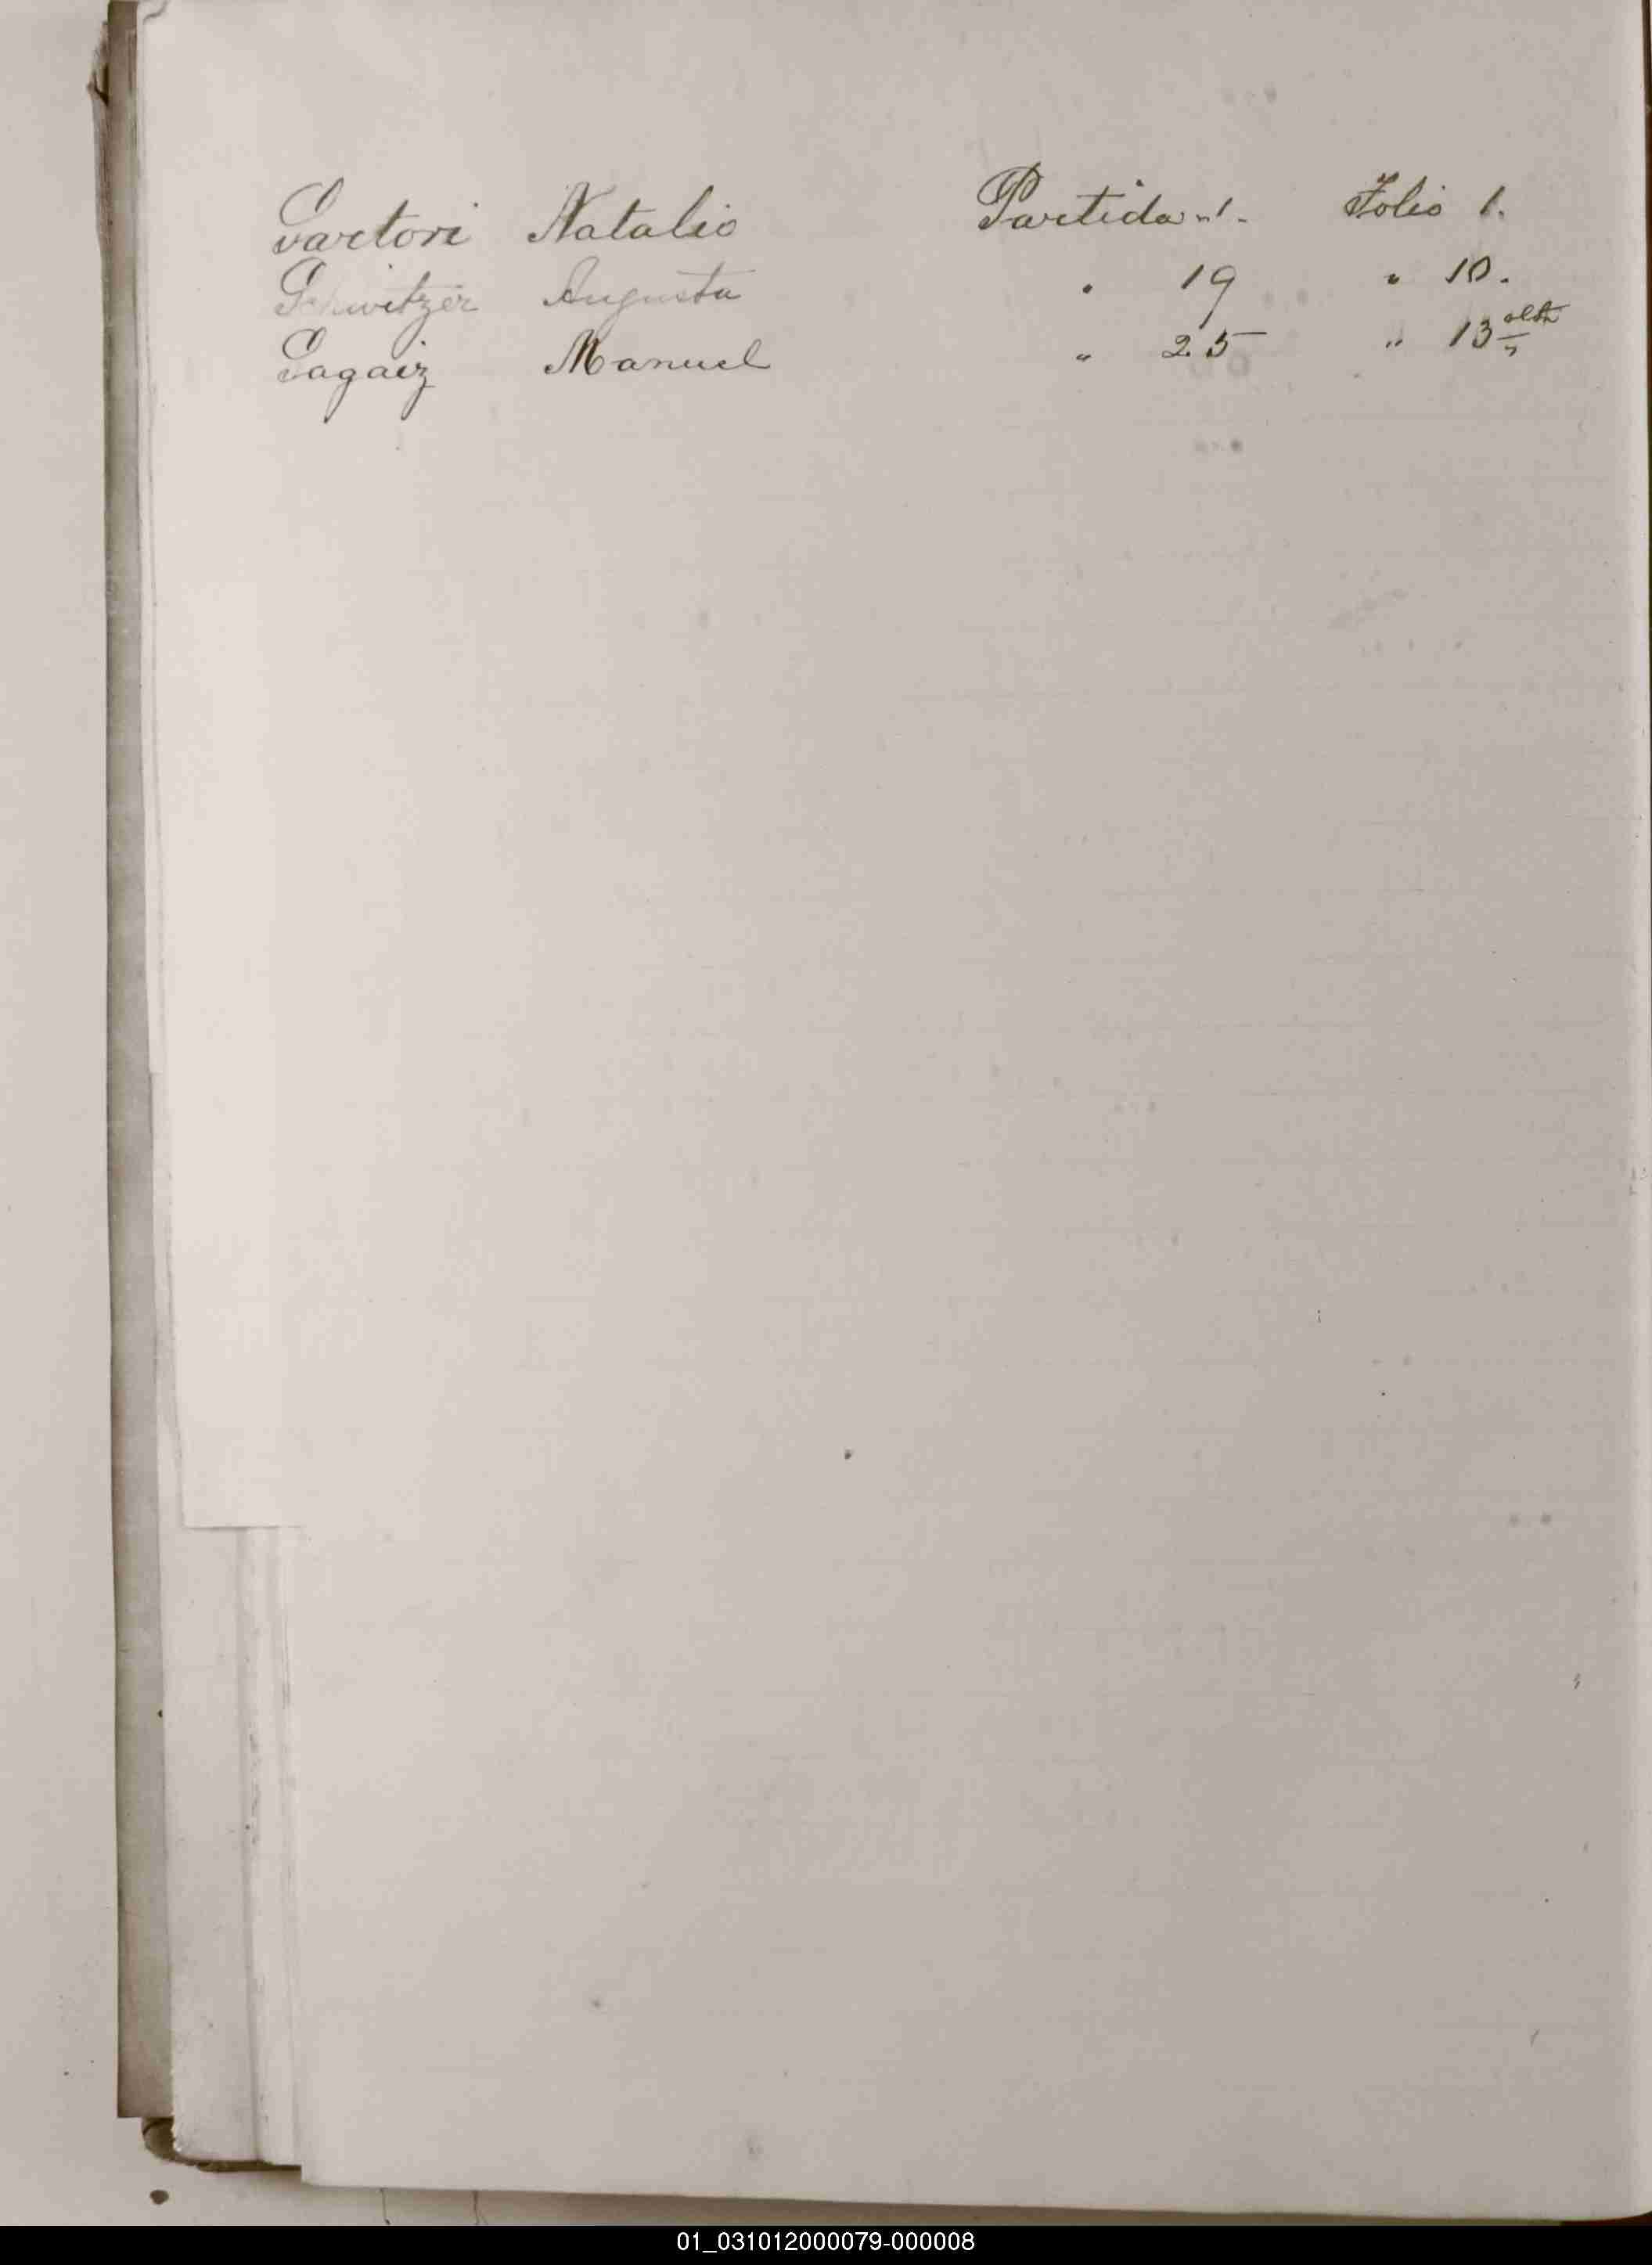 Sartori Natalio Partida "1" Folio 1.
Schwitzer Augusta " 19 " 10.
Sagaiz Manuel " 25 " 13
01_031012000079-000008